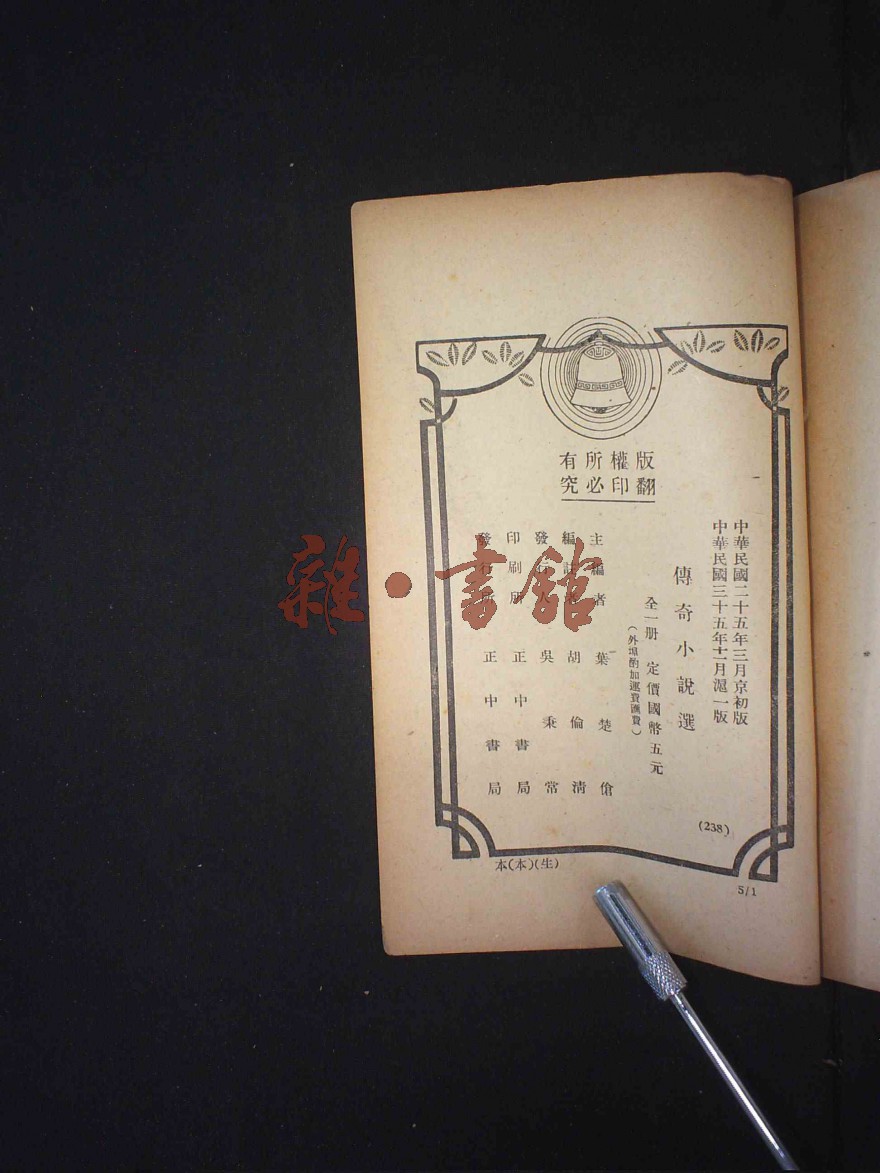 版權所有
翻印必究
中華民國二十五年三月京初版
中華民國三十五年十二月滬一版
傳奇小說選
全一册 定價國幣五元
(外埠酌加運費匯費)
主編者 葉楚傖
編註者 胡倫清
發行人 吳秉常
印刷所 正中書局
發行所 正中書局
(238)
本(本)(生)
5/1
雜·書館